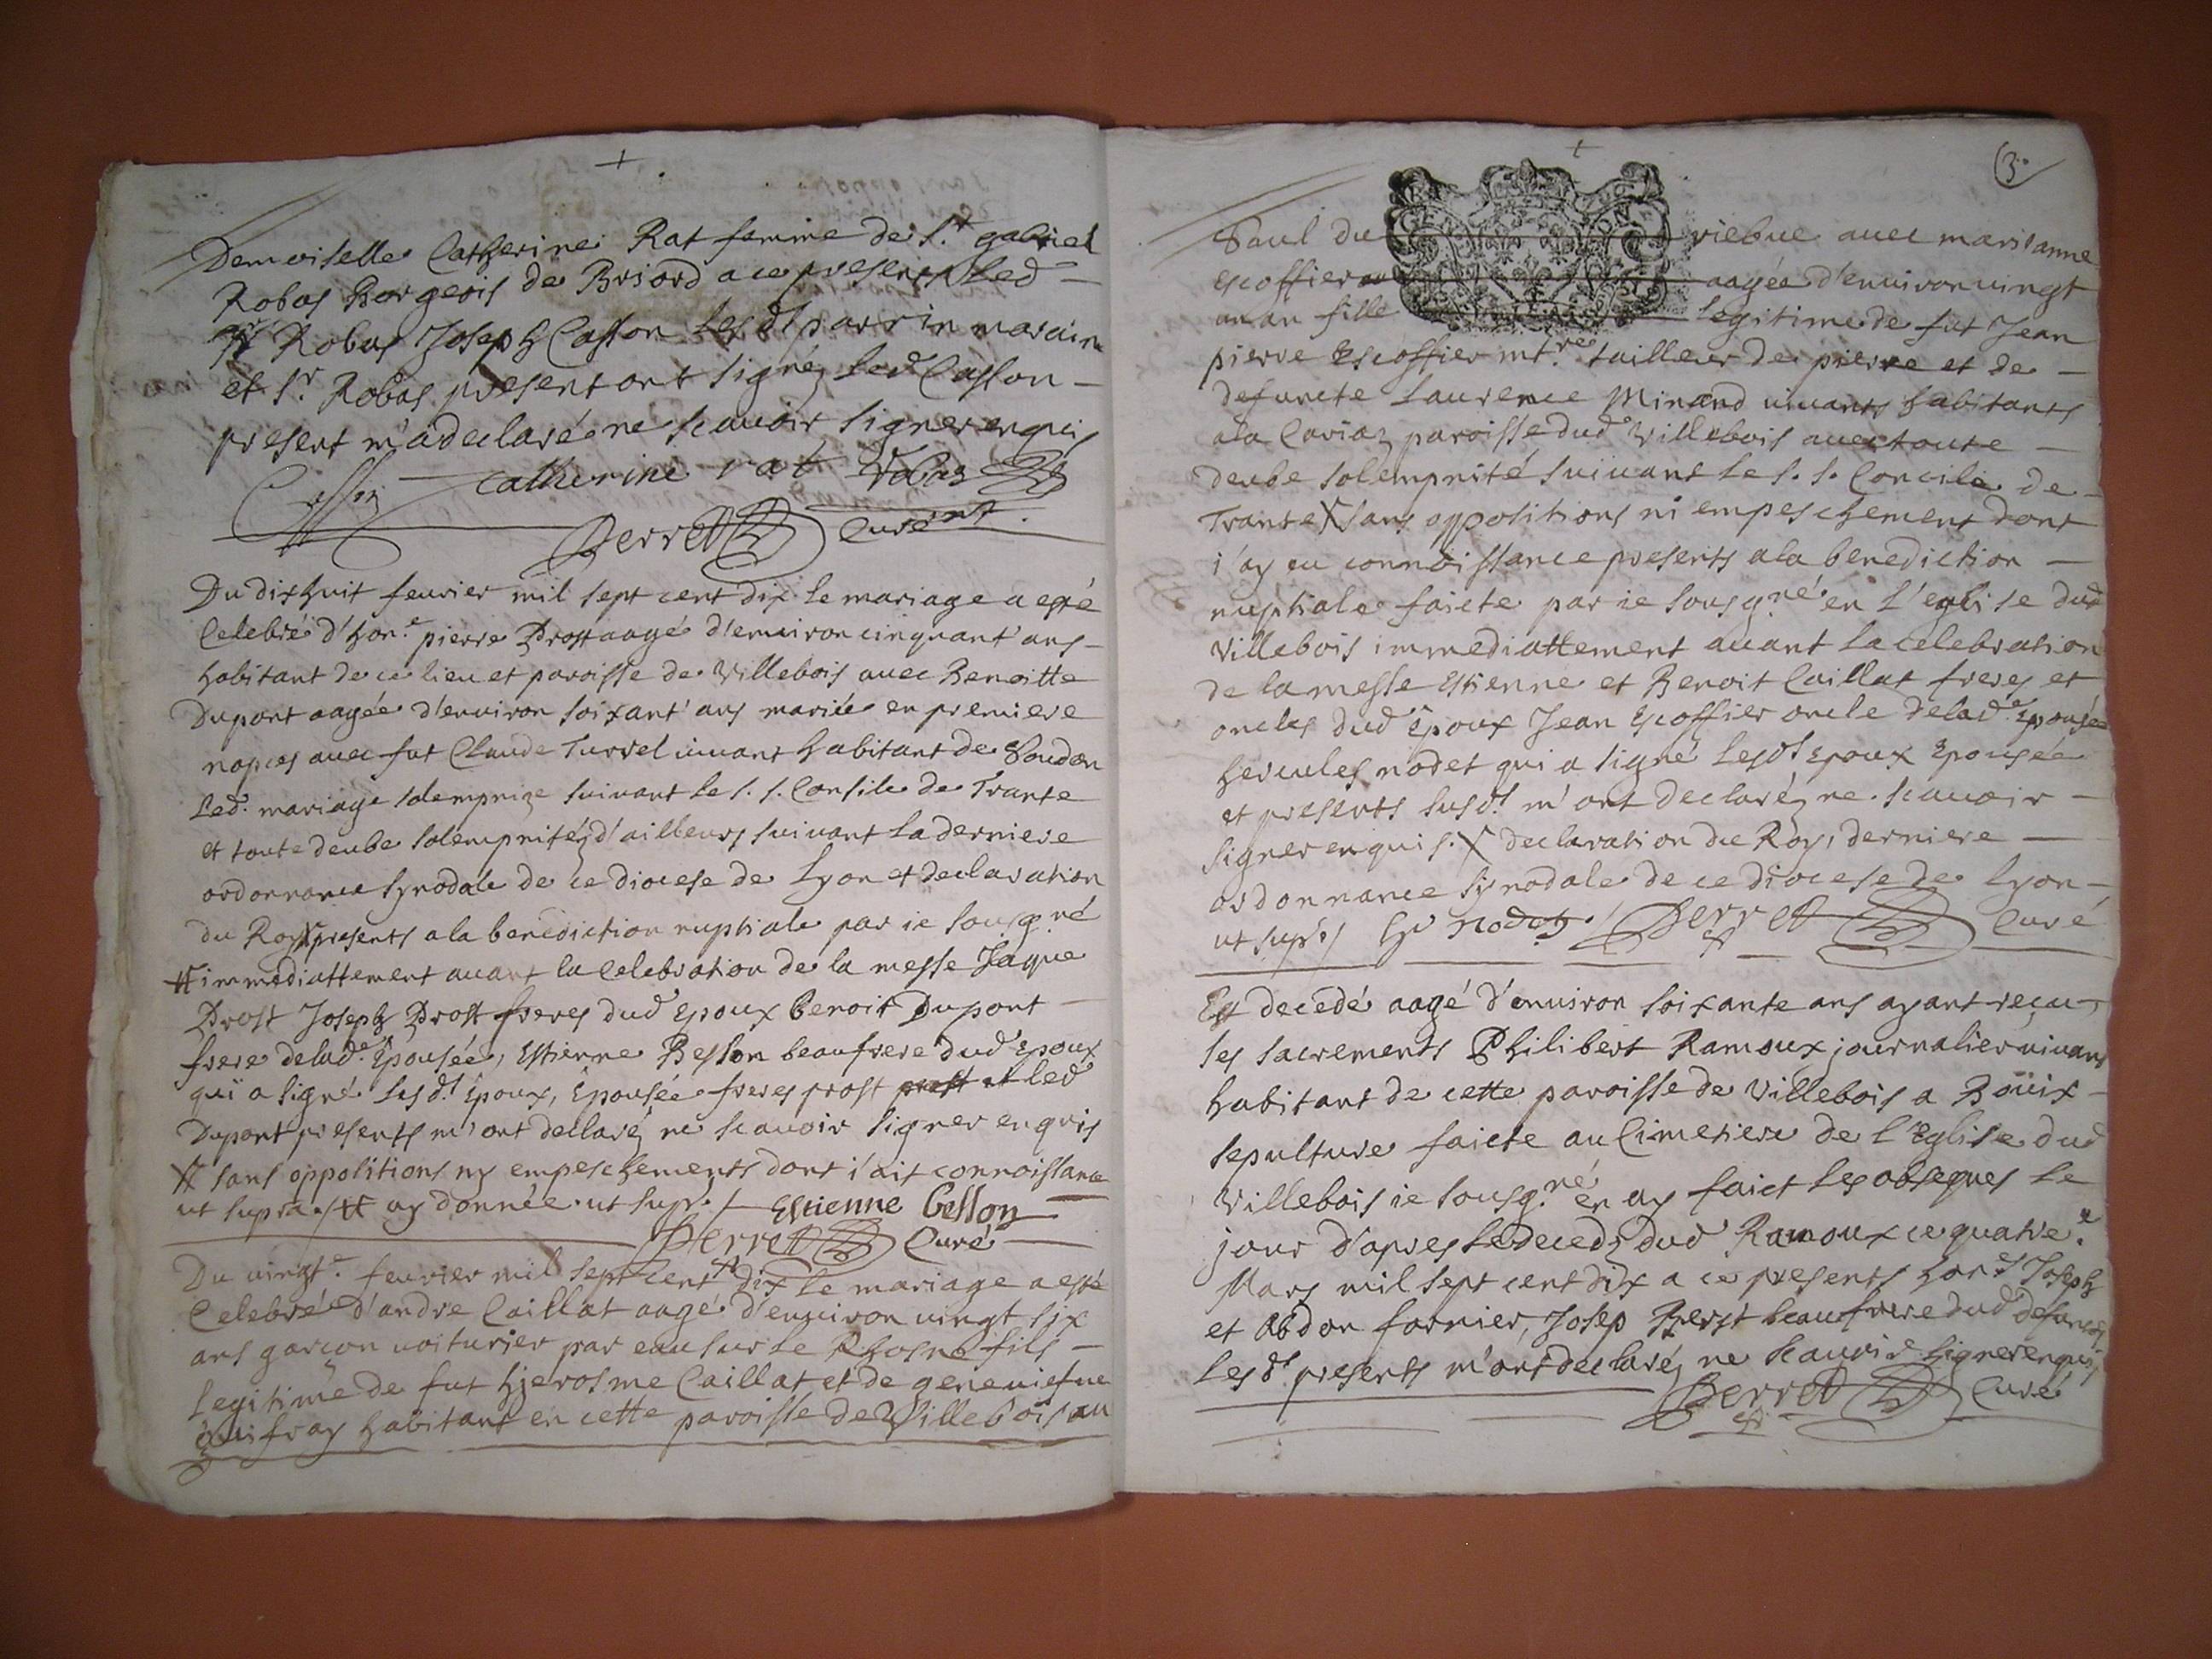 Demoiselle Catherine Rat femme de S.r gabriel
Robas Borgeois de Briord a ce present Led
Robas Joseph Casson Les d.t parrin maraine
et S.r Robas present ont signéz Led Casson
present m'a declaré ne scauoir signer enquis
catherine rat Robas
Perret Curé
Du dixhuit feurier mil sept cent dix le mariage a esté
Celebré d'hon.e pierre Prost aagé d'enuiron cinquant'ans
habitant de ce lieu et paroisse de Villebois auec Benoitte
Dupont aagée d'enuiron soixant'ans mariée en premiere
nopces auec fut Claude Turrel uiuant habitant de Soudon
Led. mariage solemprize suiuant le S. S. Consile de Trante
et toute deube solempnitéz d'ailleurs suiuant la derniere
ordonnance synodale de ce diocese de Lyon et declaration
du Roy presents a la benediction nuptiale par ie sousg.né
# immediattement auant la Celebration de la messe Jaque
Prost Joseph Prost freres dud Epoux benoit Dupont
frere delad.e Epousée, Estienne Besson beaufrere dud Epoux
qui a signé Lesd.t Epoux, Epousée freres prost prost et led
Dupont presents m'ont declaréz ne scauoir signer enquis
X sans oppositions ny empeschements dont i'ait connoissance
ut supra ./# ay donnée ut supr. / Estienne besson
Perret Curé
Du uingt.e feurier mil sept cent dix Le mariage a esté
Celebré d'andre Caillat aagé d'enuiron uingt six
ans garçon uoiturier par eau sur Le Rhosne fils
Legitime de fut hjerosme Caillat et de geneuiefue
Guifray habitant en cette paroisse de Villebois au
3.
Saul du riebue auec marianne
escoffier aagée d'enuiron uingt
un an fille Legitime de fut Jean
pierre Escoffier m.tre tailleur de pierre et de
defuncte Laurence Minand uiuants habitants
a la Cariaz paroisse dud Villebois auec toute
deube solempnité suiuant le S. S. Concile de
Trante X sans oppositions ni empeschement dont
i'ay eu connoissance presents a la benediction
nuptiale faicte par ie sousg.né en L'eglise dud
Villebois immediattement auant La celebration
de la messe Estienne et Benoit Caillat freres et
oncles dud Epoux Jean Escoffier oncle delad.e Epousée
hercules nodet qui a signé Lesd.t Epoux Epousée
et presents susd.t m'ont declaréz ne scauoir
signer enquis. X declaration du Roy, derniere
ordonnance synodale de ce diocese de Lyon
ut sup.a / nodet Perret Curé
Est decedé aagé d'enuiron soixante ans ayant reçu
les sacrements Philibert Ramoux journalier uiuant
habitant de cette paroisse de Villebois a Boüix
sepulture faicte au Cimetiere de L'Eglise dud
Villebois ie sousg.né en ay faict Les obseques Le
jour d'apres Le deceds dud Ramoux ce quatre.e
Mars mil sept cent dix a ce presents hon.es Joseph
et Abdon fornier, Josep beaufrere dud defunct
Les d.t presents m'ont declaréz ne scauoir signer enquis
Perret Curé